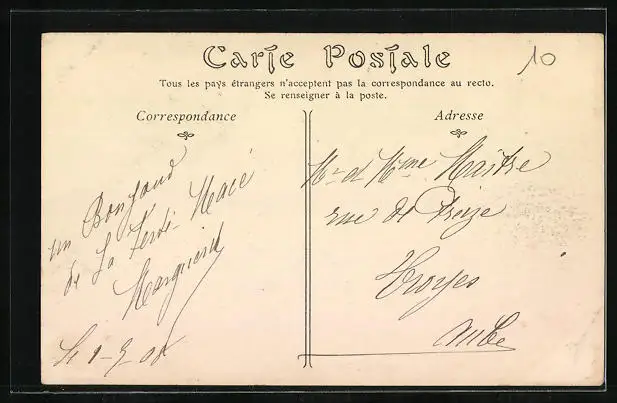 Carte Postale
10
Tous les pays étrangers n'acceptent pas la correspondance au recto.
Se renseigner à la poste.
Correspondance
Adresse
un
de La Ferté-Macé
Mr et Mme Maître
rue de
Troyes
Aube